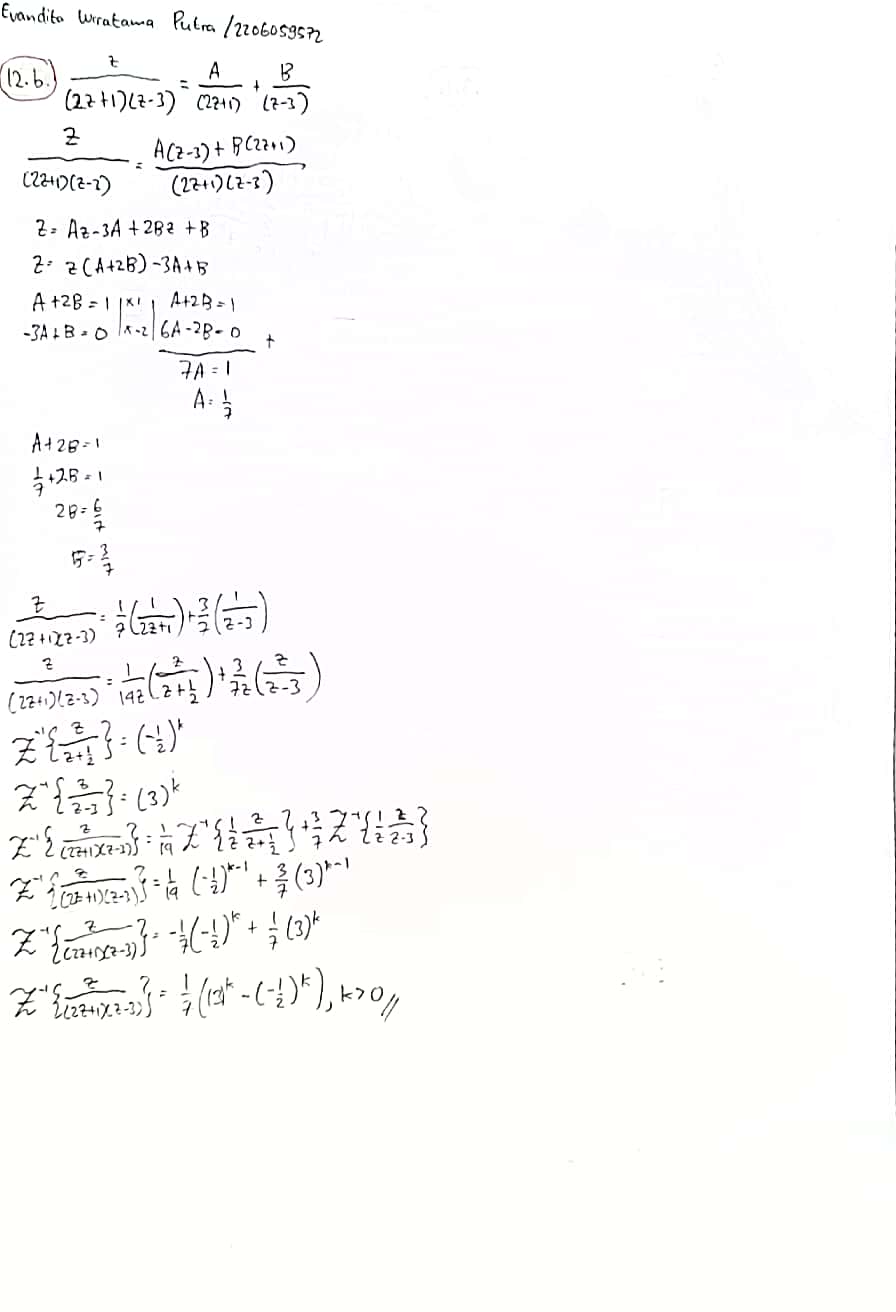 Evandito Wiratama Putra /2206059572
12.b. z/((2z+1)(z-3)) = A/(2z+1) + B/(z-3)
z/((2z+1)(z-3)) = (A(z-3) + B(2z+1))/((2z+1)(z-3))
z = Az-3A + 2Bz + B
z = z(A+2B) -3A+B
A +2B = 1 |x1| A+2B = 1
-3A+B = 0 |x-2| 6A-2B = 0 +
7A = 1
A = 1/7
A+2B = 1
1/7 + 2B = 1
2B = 6/7
B = 3/7
z/((2z+1)(z-3)) = 1/7 (1/(2z+1)) + 3/7 (1/(z-3))
z/((2z+1)(z-3)) = 1/14z (z/(z+1/2)) + 3/7z (z/(z-3))
Z⁻¹{z/(z+1/2)} = (-1/2)^k
Z⁻¹{z/(z-3)} = (3)^k
Z⁻¹{z/((2z+1)(z-3))} = 1/14 Z⁻¹{1/z z/(z+1/2)} + 3/7 Z⁻¹{1/z z/(z-3)}
Z⁻¹{z/((2z+1)(z-3))} = 1/14 (-1/2)^(k-1) + 3/7 (3)^(k-1)
Z⁻¹{z/((2z+1)(z-3))} = -1/7 (-1/2)^k + 1/7 (3)^k
Z⁻¹{z/((2z+1)(z-3))} = 1/7 ((3)^k - (-1/2)^k), k>0 //